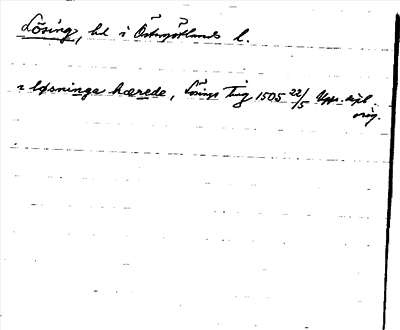 Lösing, hd i Östergötlands l.
i løsninga hærede, Lösings Ting 1505 22/5 Upps. depl.
orig.